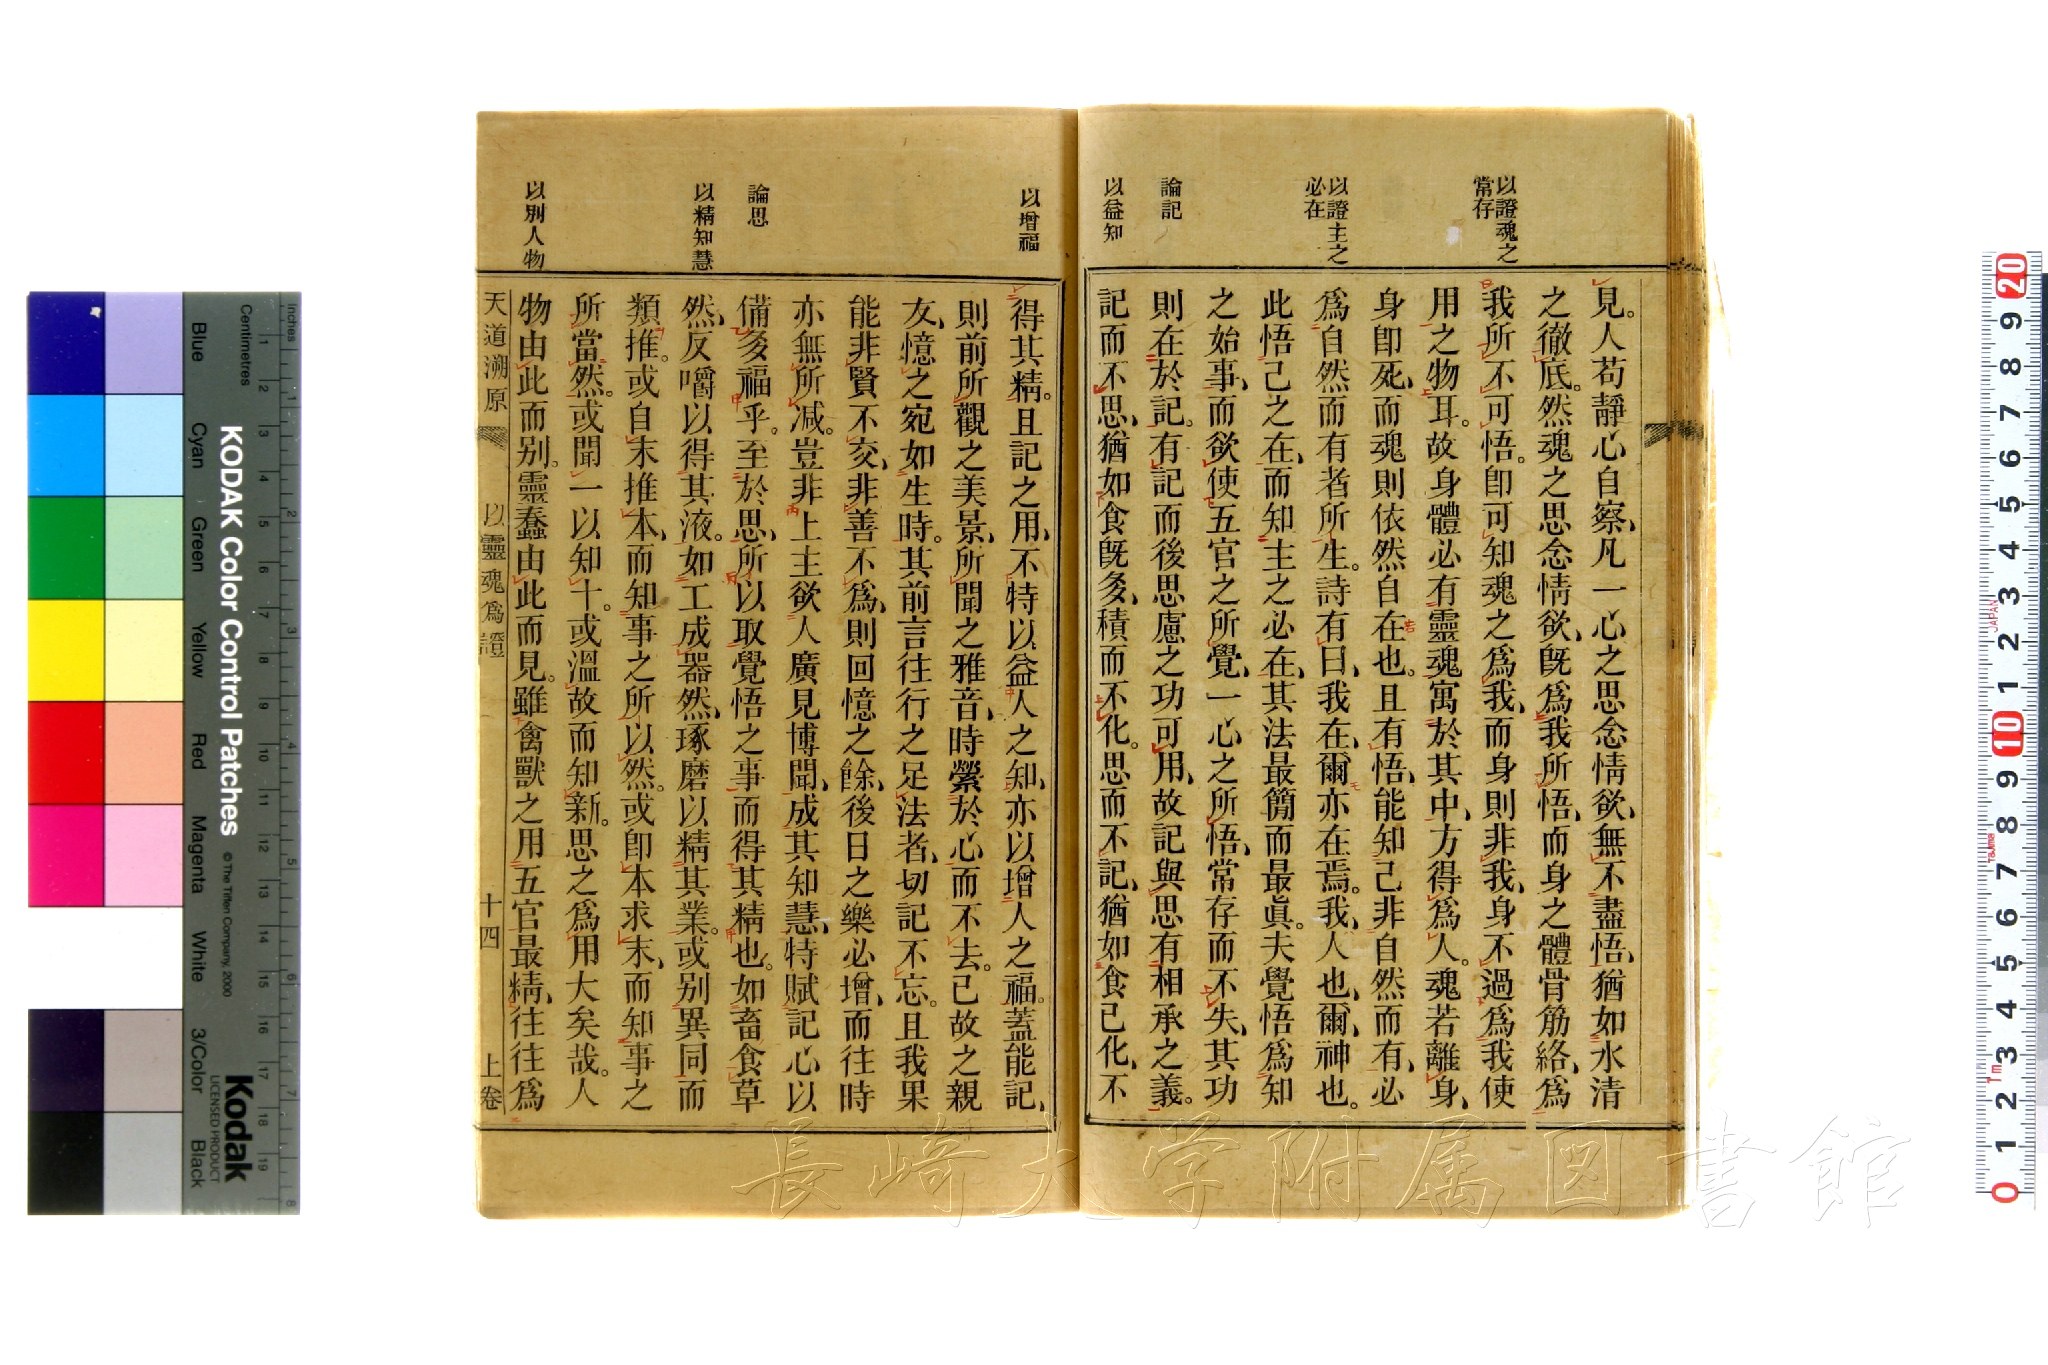 以證魂之
常存
以證主之
必在
論記
以益知
見。人苟靜心自察、凡一心之思念情欲、無不盡悟、猶如水清
之徹底。然魂之思念情欲、旣爲我所悟、而身之體骨筋絡、爲
我所不可悟。卽可知魂之爲我、而身則非我、身不過爲我使
用之物耳。故身體必有靈魂寓於其中、方得爲人。魂若離身、
身卽死、而魂則依然自在也。且有悟、能知己非自然而有、必
爲自然而有者所生。詩有曰、我在、爾亦在焉。我、人也、爾、神也。
此悟己之在、而知主之必在、其法最簡而最眞。夫覺悟爲知
之始事、而欲使五官之所覺、一心之所悟、常存而不失、其功
則在於記。有記而後思慮之功可用、故記與思有相承之義。
記而不思、猶如食旣多、積而不化。思而不記、猶如食已化、不
以增福
論思
以精知慧
以別人物
得其精。且記之用、不特以益人之知、亦以增人之福。蓋能記、
則前所觀之美景、所聞之雅音、時縈於心、而不去。已故之親
友、憶之宛如生時。其前言往行之足法者、切記不忘。且我果
能非賢不交、非善不爲、則回憶之餘、後日之樂必增、而往時
亦無所減。豈非上主欲人廣見博聞、成其知慧、特賦記心以
備多福乎。至於思、所以取覺悟之事而得其精也。如畜食草
然、反嚼以得其液。如工成器然、琢磨以精其業。或別異同而
類推。或自末推本、而知事之所以然。或卽本求末、而知事之
所當然。或聞一以知十。或溫故而知新。思之爲用大矣哉。人
物由此而別。靈蠢由此而見。雖禽獸之用五官最精、往往爲
天道溯原 以靈魂爲證 十四 上卷
Inches
Centimetres
KODAK Color Control Patches
© The Tiffen Company, 2000
Blue Cyan Green Yellow Red Magenta White 3/Color Black
Kodak
LICENSED PRODUCT
長崎大学附属図書館
JAPAN
Tajima